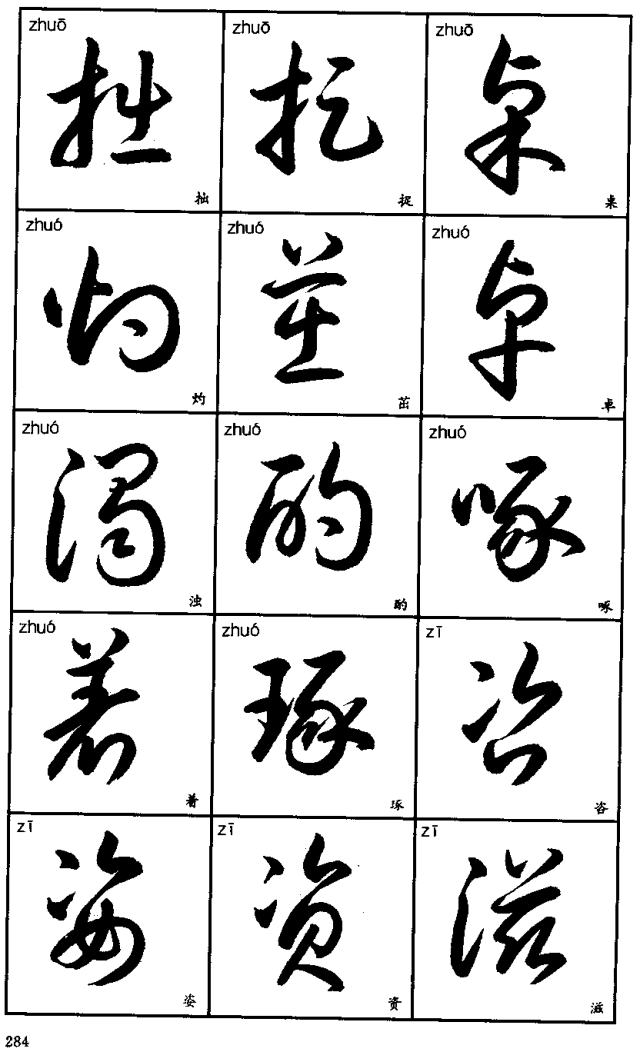 zhuō zhuō zhuō
拙 捉 桌
拙 捉 桌
zhuó zhuó zhuó
灼 茁 卓
灼 茁 卓
zhuó zhuó zhuó
濁 酌 啄
浊 酌 啄
zhuó zhuó zī
着 琢 咨
着 琢 咨
zī zī zī
姿 资 滋
姿 资 滋
284